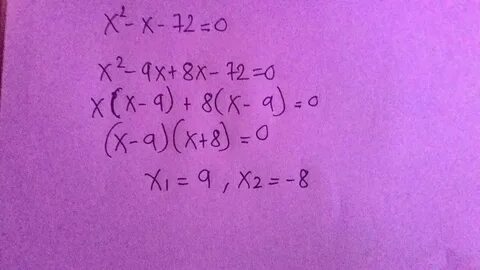 x² - x - 72 = 0
x² - 9x + 8x - 72 = 0
x(x - 9) + 8(x - 9) = 0
(x - 9)(x + 8) = 0
x₁ = 9 , x₂ = -8